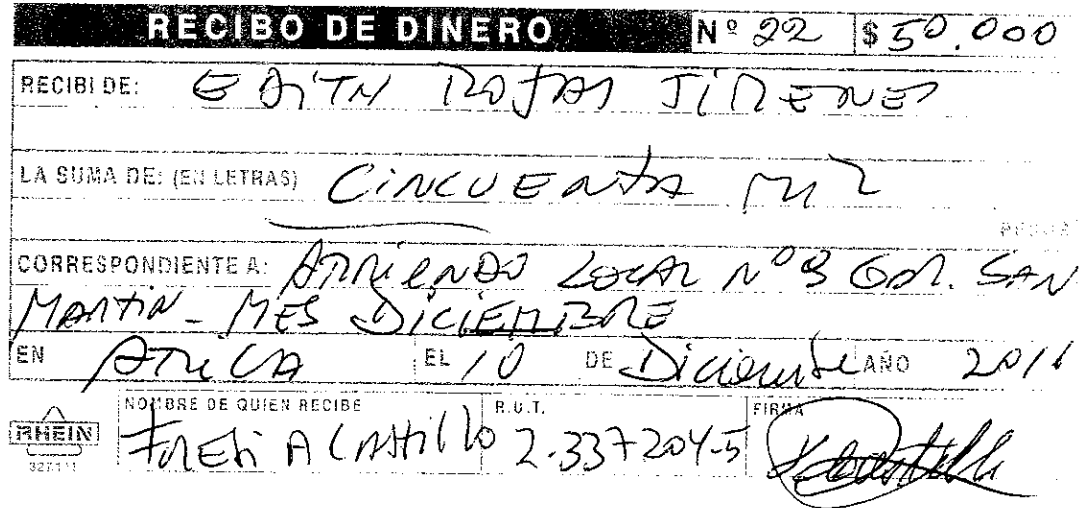 RECIBO DE DINERO Nº 22 $ 50.000
RECIBI DE: EDITH ROJAS JIMENEZ
LA SUMA DE: (EN LETRAS) CINCUENTA MIL
PESOS
CORRESPONDIENTE A: ARRIENDO LOCAL Nº 3 GAL. SAN
MARTIN - MES DICIEMBRE
EN ARICA EL 10 DE Diciembre AÑO
NOMBRE DE QUIEN RECIBE R.U.T. FIRMA
RHEIN A CASTILLO 2.337204-5